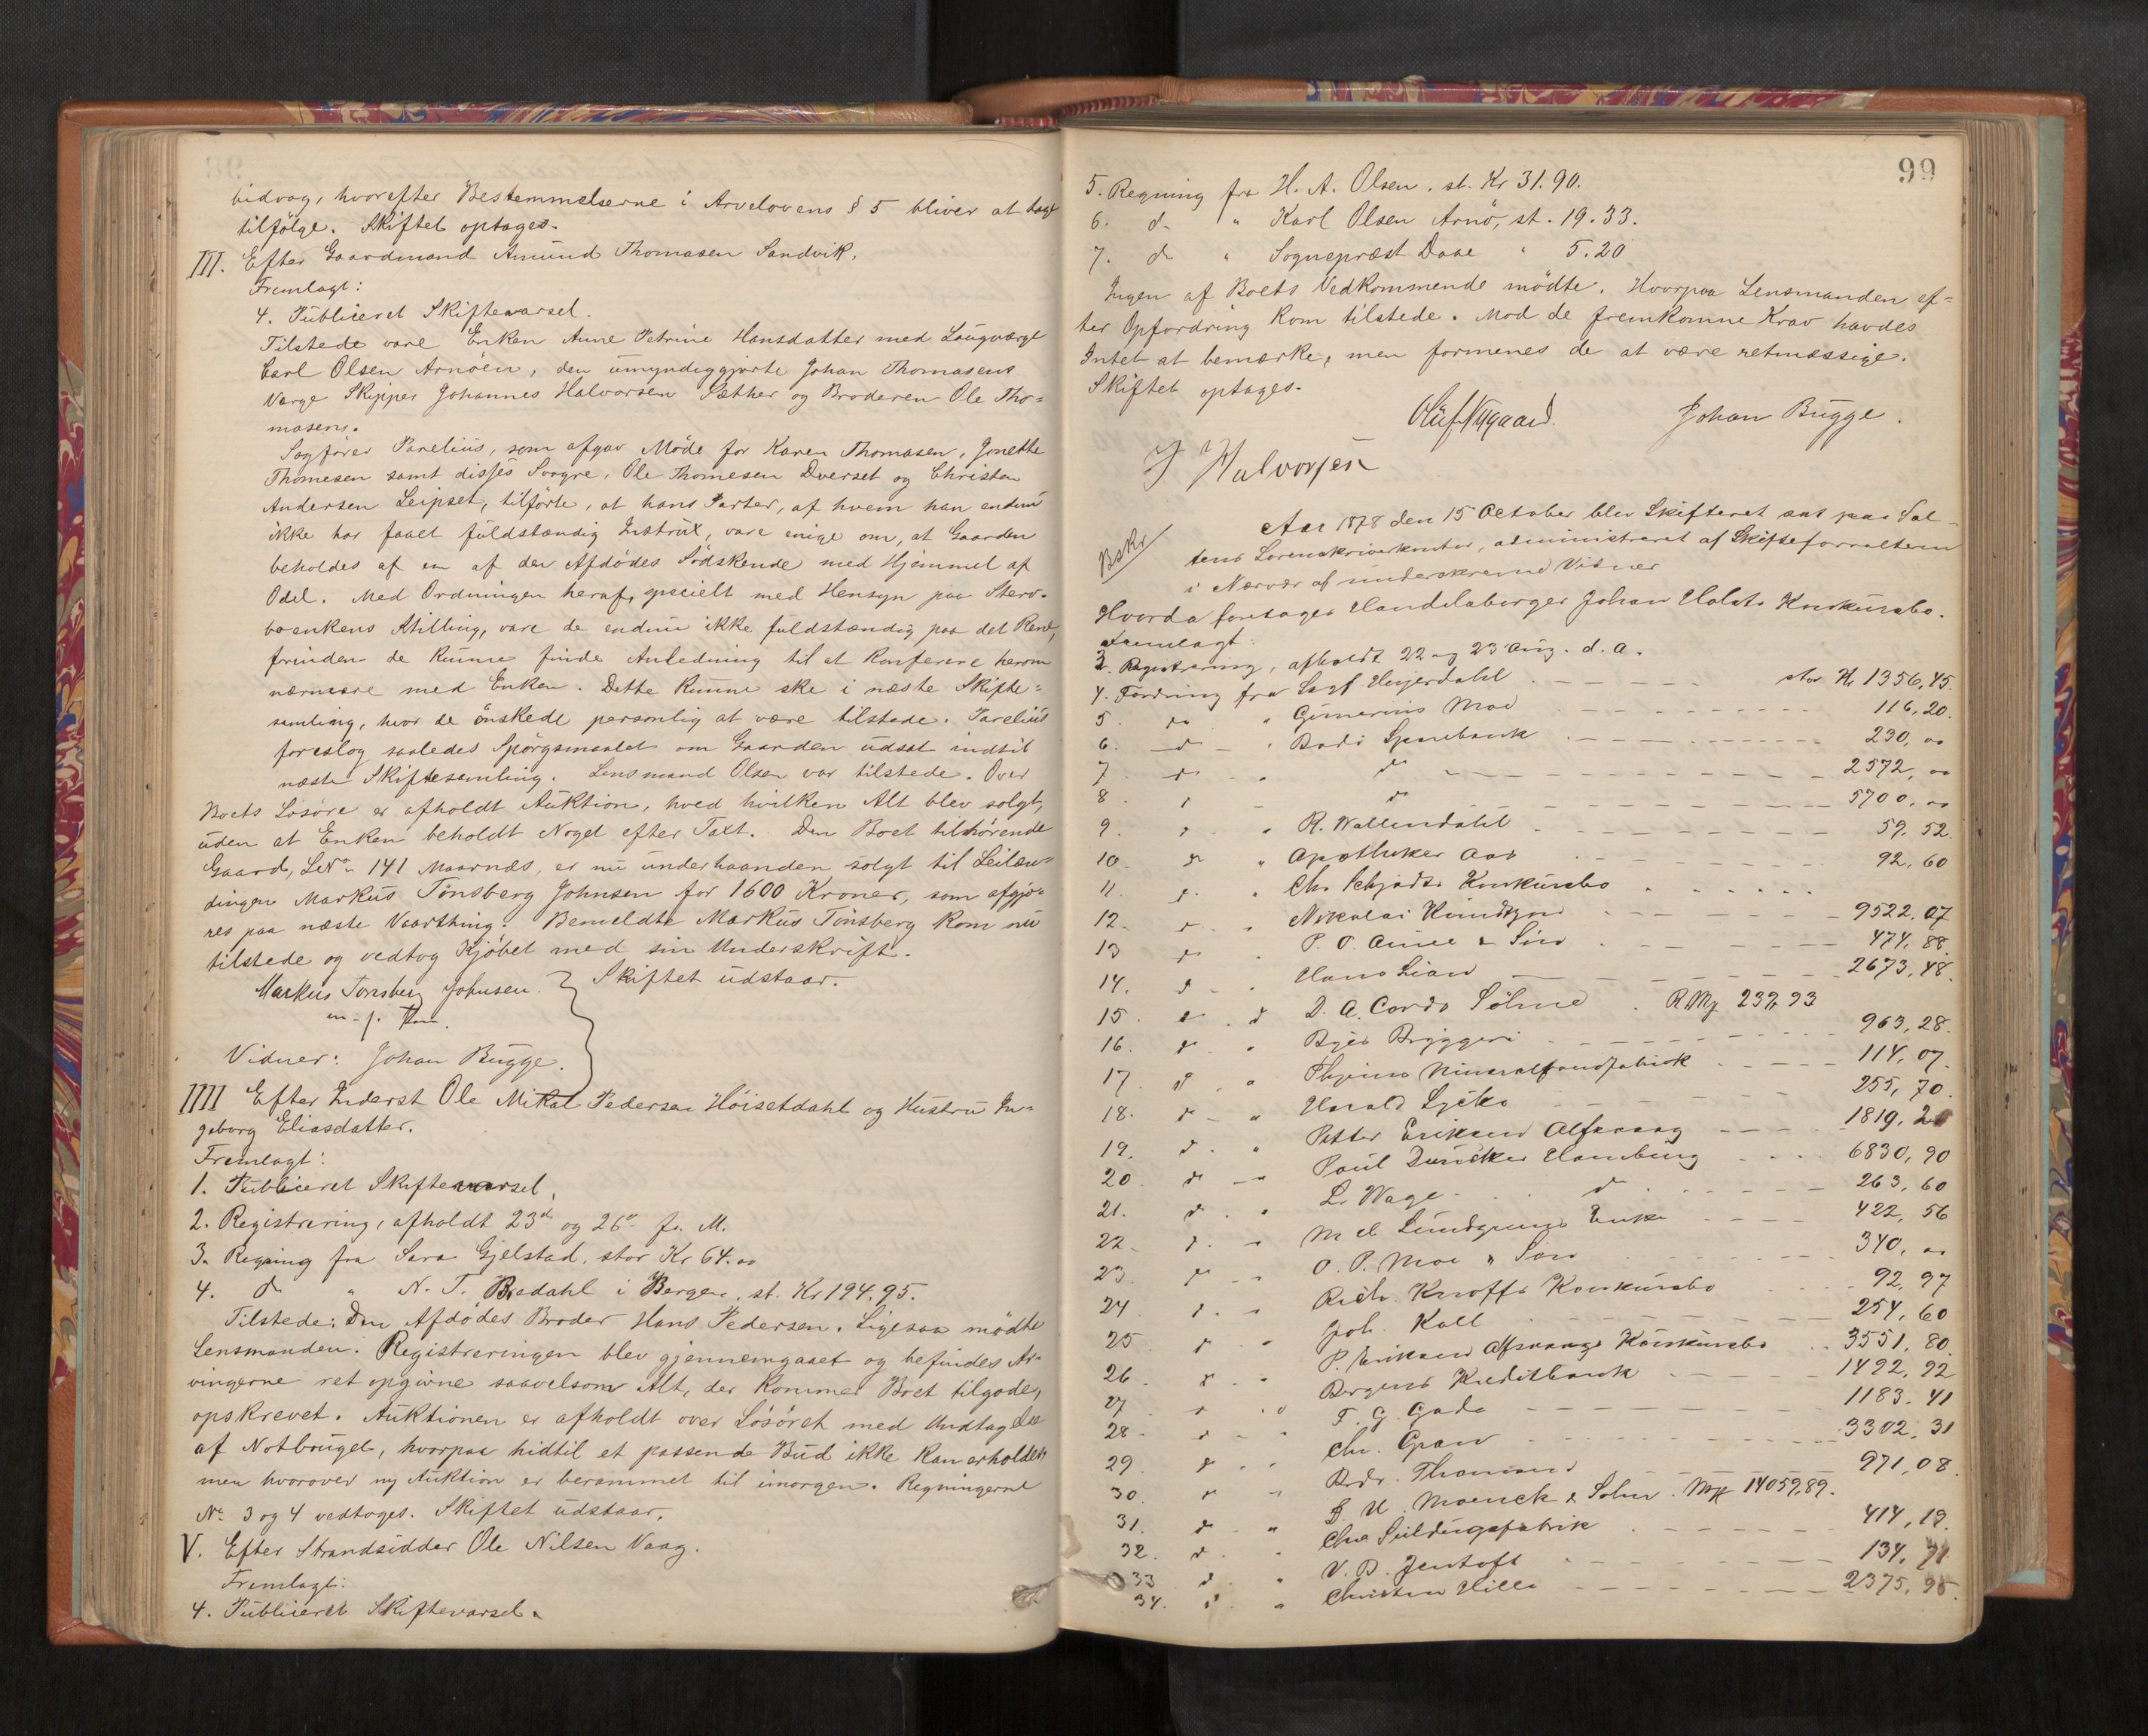 bidrag, hvorefter Bestemmelserne i Arvelovens § 5 bliver at tage
tilfølge. Skiftet optages.
III. Efter Gaardmand Amund Thomasen Sandvik.
Fremlagt:
4. Publiceret Skiftevarsel.
Tilstede vare Enken Anne Petrine Hansdatter med Laugværge
Carl Olsen Arnöen, den umyndiggjorte Johan Thomasens
Værge Skipper Johannes Halvorsen Sæther og Broderen Ole Tho=
masen.
Sagfører Parelius, som afgav Møde for Karen Thomasen, Jonette
Thomesen samt disses Svogre, Ole Thomesen Dverset og Christen
Andersen Leipset, tilførte, at hans Parter, af hvem han endnu
ikke har faaet fuldstændig Instrux, vare enige om, at Gaarden
beholdes af en af den Afdødes Södskende med Hjemmel af
Odel. Med Ordningen heraf, specielt med Hensyn paa Sterv-
boenkens Stilling, vare de endnu ikke fuldstændig paa det Rene,
forinden de kunne finde Anledning til at konferere herom
nærmere med Enken. Dette kunne ske i næste Skifte=
samling, hvor de önskede personlig at være tilstede. Parelius
foreslog saaledes Spörgsmaalet om Gaarden udsat indtil
næste Skiftesamling. Lensmand Olsen var tilstede. Over
Boets Lösöre er afholdt Auktion, hved hvilken Alt blev solgt,
uden at Enken beholdt Noget efter Taxt. Den Boet tilhörende
Gaard, LNo 141 Maarnæs, er nu underhaanden solgt til Leilæn-
dingen Markus Tönsberg Johnsen for 1600 Kroner, som afgjö=
res paa næste Vaarthing. Bemeldte Markus Tönsberg kom nu
tilstede og vedtog Kjöbet med sin Underskrift.
Markus Tonsberg Johnsen. Skiftet udstaar.
m. f. Pen.
Vidner: Johan Bugge.
IIII Efter Inderst Ole Mikal Pedersen Höisetdahl og Hustru In=
geborg Eliasdatter.
Fremlagt:
1. Publiceret Skiftevarsel.
2. Registrering, afholdt 23de og 26de f. M.
3. Regning fra Sara Gjelstad, stor Kr 64.00
4. do " N. T. Bredahl i Bergen, st. Kr 194.95.
Tilstede: Den Afdödes Broder Hans Pedersen. Ligesaa mödte
Lensmanden. Registreringen blev gjennemgaaet og befindes Ar-
vingerne ret opgivne saavelsom Alt, der kommer Boet tilgode,
opskrevet. Auktionen er afholdt over Lösöret med Undtagelse
af Notbruget, hvorpaa hidtil et passende Bud ikke kan erholdes
men hvorover ny Auktion er berammet til imorgen. Regningerne
No. 3 og 4 vedtoges. Skiftet udstaar.
V. Efter Strandsidder Ole Nilsen Vaag.
Fremlagt:
4. Publiceret Skiftevarsel.
99
5. Regning fra H. A. Olsen, st. Kr 31.90.
6. do " Karl Olsen Arnö, st. 19.33.
7. do " Sognepræst Daae " 5.20
Ingen af Boets Vedkommende mödte. Hvorpaa Lensmanden ef=
ter Opfordring kom tilstede. Mod de fremkomne Krav havdes
Intet at bemærke, men formenes de at være retmæssige.
Skiftet optages.
Oluf Nygaard. Johan Bugge.
J Halvorsen
Bskr
Aar 1878 den 15 October blev Skifteret sat paa Sal-
tens Sorenskriverkontor, administreret af Skifteforvalteren
i Nærvær af underskrevne Vidner
Hvorda foretages Handelsborger Johan Holsts Konkursbo.
Fremlagt:
3. Registrering, afholdt 22 og 23 Aug. d. A.
4. Fordring fra Sagf Heyerdahl stor Kr 1356,45.
5. do " Gunerius Moe 116,20.
6. do " Bodö Sparebank 230,00
7 do " do 2572,00
8. do do 5700,00
9. do " R. Wallendahl 59,52.
10. do " Apotheker Aas 92,60
11. do " Chr Schjødts Konkursbo
12. do " Nikolai Knudtzon 9522,07
13 do " P. O. Aune & Sön 474,88.
14. do " Hans Lian 2673,48
15 do D. A. Cords Söhne RMf 232,93
16. do " Byes Bryggeri 963,28.
17. do " Mineralvandfabrik 114,07.
18. do " Harald Lycke 255,70.
19. do " Petter Eriksen Alsvaag 1819,2
20 do " Paul Duncker Hamburg 6830,90
21. do " L. Wage do 263,60
22. do " M E Lundgreens Enke 422,56
23. do " O. P. Moe & Sön 340,00
24 do " Rich. Knoffs Konkursbo 92,97
25 do " Joh. Koll 254,60
26 do " P. Eriksen Alsvaags Konkursbo 3551,80.
27 do " Bergens Kreditbank 1492,92
28. do " F. G. Gade 1183.41
29. do " Chr. Gran 3302,31
30. do " Brdr. Thomsens 971,08.
31. do " B H. Moenck & Sohn. Mf 14059,89.
32. do " Chra Seildugsfabrik 414,19.
33 do " V. B. Jentoft 134,71
34. do " Christen Hille 2375,95.